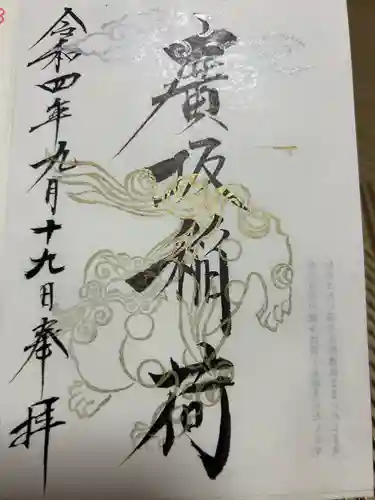 廣坂稲荷
令和四年九月十九日奉拝